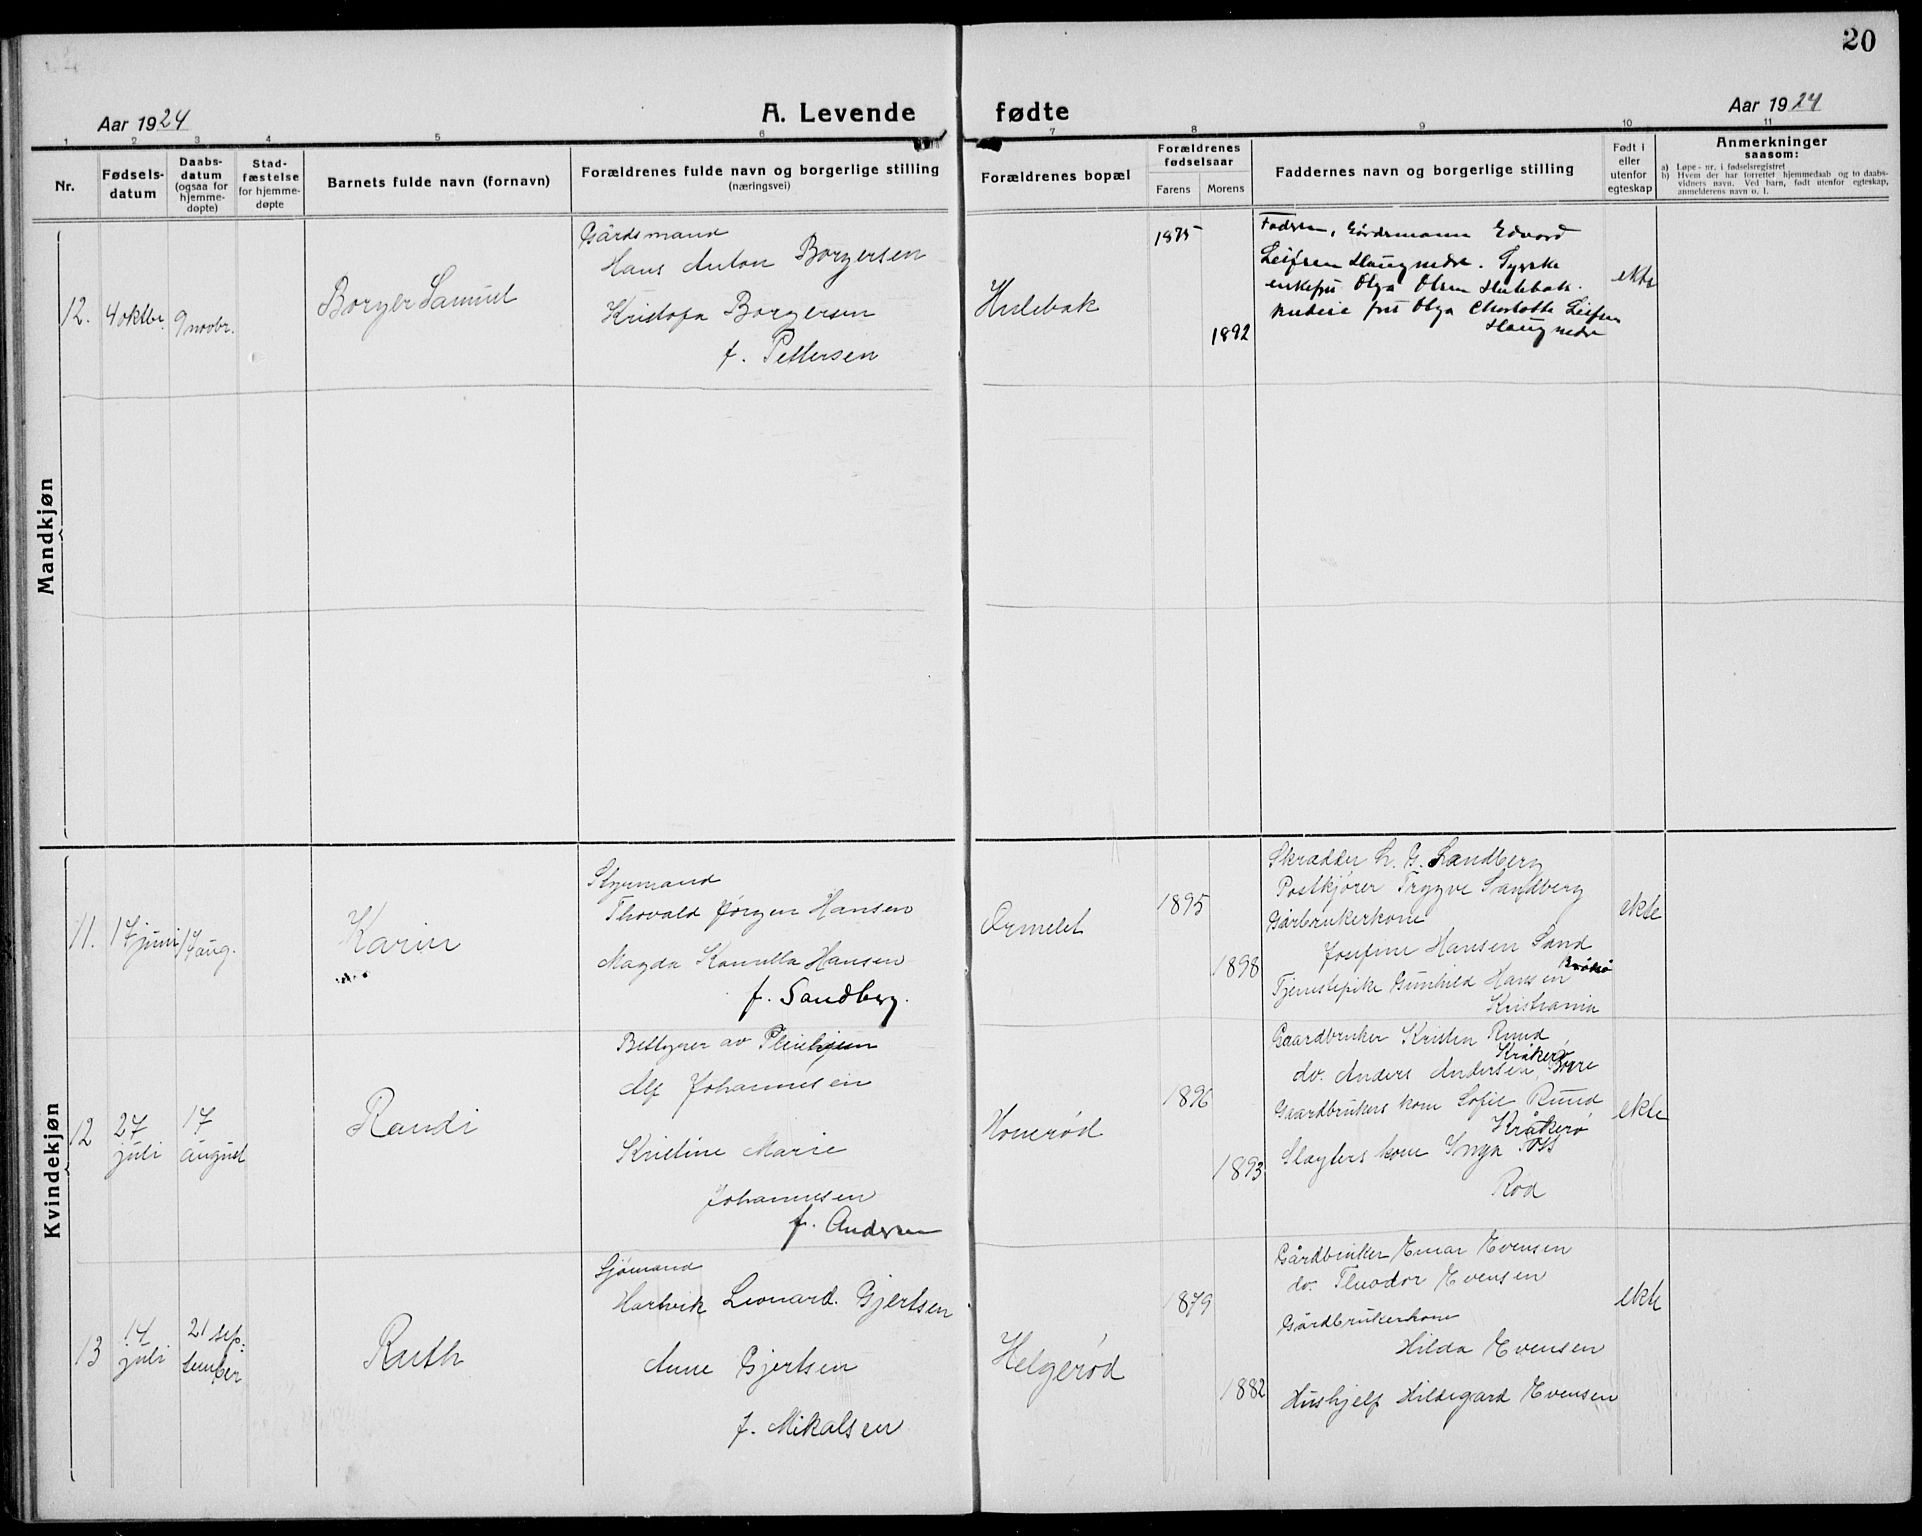 20
Aar 1924
A. Levende fødte
Aar 1924
1 2 3 4 5 6 7 8 9 10 11
Nr.
Fødsels-
datum
Daabs-
datum
(ogsaa for
hjemme-
døpte)
Stad-
fæstelse
for hjemme-
døpte
Barnets fulde navn (fornavn)
Forældrenes fulde navn og borgerlige stilling
(næringsvei)
Forældrenes bopæl
Forældrenes
fødselsaar
Farens Morens
Faddernes navn og borgerlige stilling
Født i
eller
utenfor
egteskap
Anmerkninger
saasom:
a) Løpe-nr. i fødselsregistret
b) Hvem der har forrettet hjemmedaab og to daabs-
vidners navn. Ved barn, født utenfor egteskap,
anmelderens navn o. l.
Mandkjøn
12.
4 oktbr.
9 novbr.
Borger Samuel
Gårdsmand
Hans Anton Borgersen
Kristofa Borgersen
f. Pettersen
Hulebak
1875
1892
Faderen, Gårdsmann Edvard
Leifsen Haugnedre.
enkefru Olga Olsen Hulebak.
fru Olga Charlotte Leifsen
Haugnedre
ekte
Kvindekjøn
11.
17 juni
17 aug.
Karin
Styrmand
Thorvald Jørgen Hansen
Magda Kamilla Hansen
f. Sandberg.
Ormelet
1895
1898
Skrædder L. G. Sandberg
Postkjører Trygve Sandberg
Gårbrukerkone
Josefine Hansen Sand
Tjenestepike Gunhild Hansen
Kristiania
ekte
12
27
juli
17
august
Randi
Bestyrer av Pleiehjem
Alf Johannesen
Kristine Marie
Johannesen
f. Andersen
Honerød
1896
1893
Gaardbruker Kristen Ruud
Kråkerø
do. Anders Andersen, Borre
Gaardbrukers kone Sofie Ruud
Kråkerø
Slagters kone Inga
Rød
ekte
13
14
juli
21 sep-
tember
Ruth
Sjømand
Hartvik Leonard. Gjertsen
Anne Gjertsen
f. Mikalsen
Helgerød
1879
1882
Gårdbruker Einar Evensen
do. Theodor Evensen
Gårdbrukerkone
Hilda Evensen
Hushjelp Hildegard Evensen
ekte